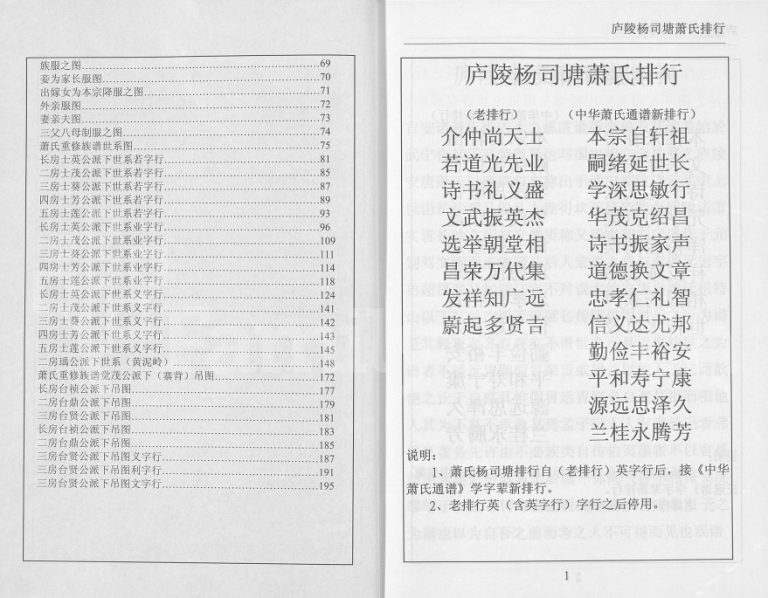 族服之图……69
妾为家长服图……70
出嫁女为本宗降服之图……71
外亲服图……72
妻亲夫图……73
三父八母制服之图……74
萧氏重修族谱世系图……75
长房士英公派下世系若字行……81
二房士茂公派下世系若字行……85
三房士葵公派下世系若字行……87
四房士芳公派下世系若字行……89
五房士莲公派下世系若字行……93
长房士英公派下世系业字行……96
二房士茂公派下世系业字行……109
三房士葵公派下世系业字行……111
四房士芳公派下世系业字行……114
五房士莲公派下世系业字行……118
长房士英公派下世系义字行……124
二房士茂公派下世系义字行……141
三房士葵公派下世系义字行……142
四房士芳公派下世系义字行……143
五房士莲公派下世系义字行……145
二房瑀公派下世系（黄泥岭）……148
萧氏重修族谱觉茂公派下（寨背）吊图……172
长房台祯公派下吊图……177
二房台鼎公派下吊图……179
三房台贤公派下吊图……181
长房台祯公派下吊图……183
二房台鼎公派下吊图……185
三房台贤公派下吊图义字行……187
三房台贤公派下吊图利字行……191
三房台贤公派下吊图文字行……195
庐陵杨司塘萧氏排行
庐陵杨司塘萧氏排行
（老排行） （中华萧氏通谱新排行）
介仲尚天士 本宗自轩祖
若道光先业 嗣绪延世长
诗书礼义盛 学深思敏行
文武振英杰 华茂克绍昌
选举朝堂相 诗书振家声
昌荣万代集 道德换文章
发祥知广远 忠孝仁礼智
蔚起多贤吉 信义达尤邦
勤俭丰裕安
平和寿宁康
源远思泽久
兰桂永腾芳
说明：
1、萧氏杨司塘排行自（老排行）英字行后，接《中华
萧氏通谱》学字辈新排行。
2、老排行英（含英字行）字行之后停用。
1